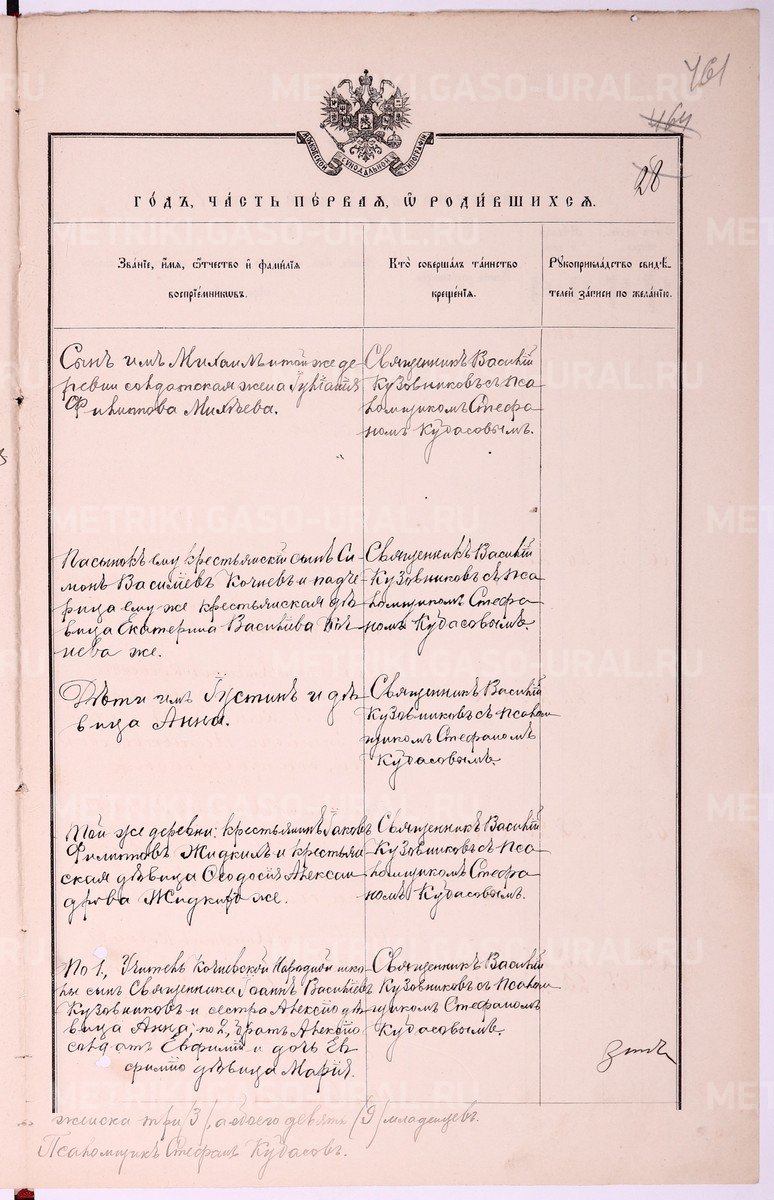 461
464
28
МОСКОВСКОЙ СѴНОДАЛЬНОЙ ТИПОГРАФІИ
ГО́ДЪ, ЧА́СТЬ ПЕ́РВАЯ, Ѿ РОДИ́ВШИХСЯ.
Зва́ніе, и́мя, ѻ҆́тчество и҆ фами́лія
воспріе́мниковъ.
Кто̀ соверша́лъ та́инство
креще́нія.
Рꙋкоприкла́дство свидѣ́-
телей за́писи по жела́нію.
Сынъ имъ Михаилъ и той же де
ревни солдатская жена
Филиппова Михѣева.
Священникъ Василій
Кузовниковъ съ пса
ломщикомъ Стефа
номъ Кудасовымъ.
Пасынокъ ему крестьянскій сынъ Си
монъ Василіевъ Кочневъ и падче
рица ему же крестьянская дѣ
вица Екатерина Василіева Коч
нева же.
Священникъ Василій
Кузовниковъ съ пса
ломщикомъ Стефа
номъ Кудасовымъ.
Дѣти имъ Іустинъ и дѣ
вица Анна.
Священникъ Василій
Кузовниковъ съ псалом
щикомъ Стефаномъ
Кудасовымъ.
Той же деревни: крестьянинъ Іаковъ
Филиповъ Жидкихъ и крестьян
ская дѣвица Ѳеодосія Алексан
дрова Жидкихъ же.
Священникъ Василій
Кузовниковъ съ пса
ломщикомъ Стефа
номъ Кудасовымъ.
По 1, Учитель Кочневской Народной шко
лы сынъ Священника Іоаннъ Василіевъ
Кузовниковъ и сестра Алексію дѣ
вица Анна; по 2, братъ Алексію
солдатъ Евфимій и дочь Ев
фимію дѣвица Марія.
Священникъ Василій
Кузовниковъ съ псалом
щикомъ Стефаномъ
Кудасовымъ.
женска три /3/, а обоего девять (9) младенцевъ.
Псаломщикъ Стефанъ Кудасовъ.
METRIKI.GASO-URAL.RU